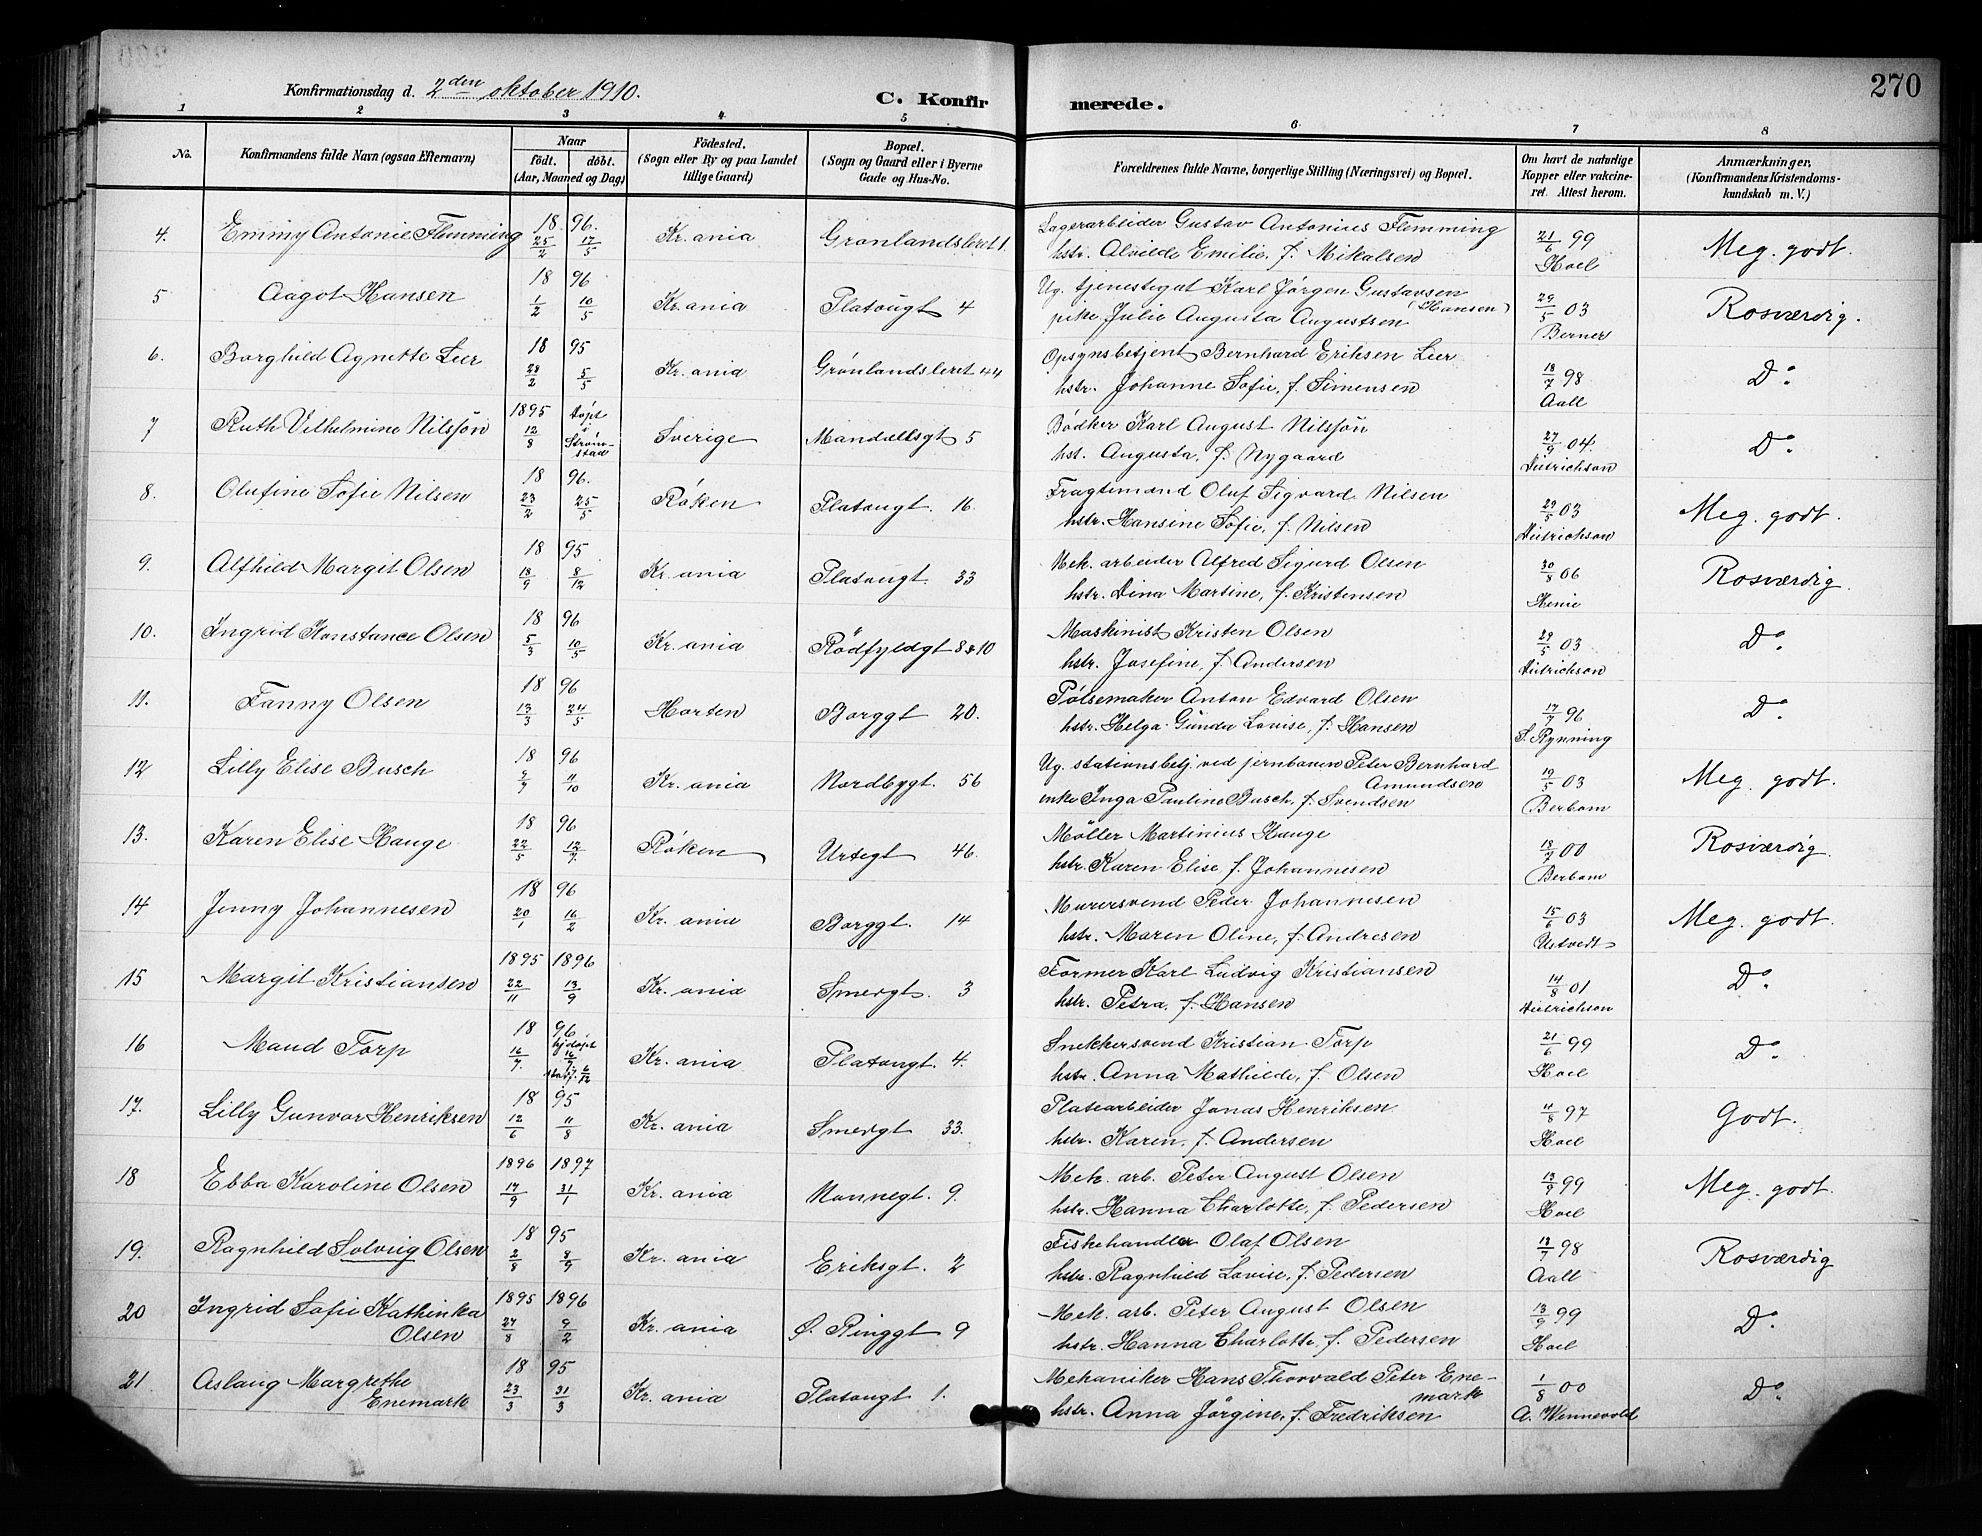 Konfirmationsdag d. 2den oktober 1910.
C. Konfirmerede.
270
1 2 3 4 5 6 7 8
No. Konfirmandens fulde Navn (ogsaa Efternavn) Naar født. døbt. (Aar, Maaned og Dag) Fødested. (Sogn eller By og paa Landet tillige Gaard) Bopæl. (Sogn og Gaard eller i Byerne Gade og Hus-No. Forældrenes fulde Navne, borgerlige Stilling (Næringsvei) og Bopæl. Om havt de naturlige Kopper eller vakcineret. Attest herom. Anmærkninger, (Konfirmandens Kristendomskundskab m. V.)
4. Emmy Antonie Flemming 18 96. 25/2 17/5 Kr.ania Grønlandsleret 1. Lagerarbeider Gustav Antonius Flemming
hstr. Alvilde Emilie, f. Mikalsen 21/6 99 Hoel Meg. godt.
5 Aagot Hansen 18 96 1/2 10/5 Kr.ania Platougt 4 Ug. tjenestegut Karl Jørgen Gustavsen (Hansen)
pike Julie Augusta Augustsen 29/5 03 Berner Rosværdig.
6. Borghild Agnette Lier 18 95 28/2 5/5 Kr.ania Grønlandsleret 44 Opsynsbetjent Bernhard Eriksen Lier
hstr. Johanne Sofie, f. Simensen 18/7 98 Aall Do.
7 Ruth Vilhelmine Nilsson 1895 12/8 døpt i Strømstad Sverige Mandallsgt 5 Bødker Karl August Nilsson
hst. Augusta, f. Nygaard 27/9 04. Ditrichson Do.
8. Olufine Sofie Nilsen 18 96. 23/2 25/5 Røken Platougt. 16. Fragtemand Oluf Sigvard Nilsen
hstr. Hansine Sofie, f. Nilsen 29/5 03 Ditrichson Meg. godt.
9. Alfhild Margit Olsen 18 95 18/9 8/12 Kr.ania Platougt. 33 Mek. arbeider Alfred Sigurd Olsen
hstr. Dina Martine, f. Kristensen 30/8 06 Henie Rosværdig.
10. Ingrid Konstance Olsen 18 96 5/3 10/5 Kr.ania Rødfyldgt 8 & 10 Maskinist Kristen Olsen
hstr. Josefine, f. Andersen 29/5 03 Ditrichson Do.
11. Fanny Olsen 18 96 13/3 24/5 Horten Borggt 20. Pølsemaker Anton Edvard Olsen
hstr. Helga Gunda Lovise, f. Hansen 17/7 96 S. Rynning Do.
12 Lilly Elise Busch 18 96 11/10 Kr.ania Nordbygt. 56 Ug. stationsbetj. ved jernbanen Peter Bernhard Amundsen
enke Inga Pauline Busch, f. Svendsen 19/5 03 Berbom Meg. godt.
13. Karen Elise Hauge 18 96 22/5 12/7 Røken Urtegt 46. Møller Martinius Hauge
hstr. Karen Elise f. Johannesen 18/7 00 Berbom Rosværdig.
14 Jenny Johannesen 18 96 20/1 16/2 Kr.ania Borggt. 14 Murersvend Peder Johannesen
hstr. Maren Oline, f. Andresen 15/6 03 Ustvedt Meg. godt.
15 Margit Kristiansen 1895 1896 22/11 13/9 Kr.ania Smedgt. 3 Former Karl Ludvig Kristiansen
hstr. Petra, f. Hansen 14/8 01 Ditrichson Do.
16 Maud Torp 18 96 16/7 hjdøpt 16/7 stadf. 6/12 Kr.ania Platougt. 4. Snekkersvend Kristian Torp
hstr. Anna Mathilde, f. Olsen 21/6 99 Hoel Do.
17. Lilly Gunvor Henriksen 18 95 12/6 11/8 Kr.ania Smedgt 33. Platearbeider Jonas Henriksen
hstr. Karen, f. Andersen 11/8 97 Hoel Godt.
18 Ebba Karoline Olsen 1896 1897 17/9 31/1 Kr.ania Nonnegt. 9. Mek. arb. Peter August Olsen
hstr. Hanna Charlotte, f. Pedersen 13/9 99 Hoel Meg. godt.
19. Ragnhild Solveig Olsen 18 95 2/8 8/9 Kr.ania Eriksgt. 2 Fiskehandler Olaf Olsen
hstr. Ragnhild Lovise, f. Pedersen 18/7 98 Aall Rosværdig
20 Ingrid Sofie Kathinka Olsen 1895 1896 27/8 9/2 Kr.ania Ø. Ringgt 9 Mek. arb. Peter August Olsen
hstr. Hanna Charlotte, f. Pedersen 13/9 99 Hoel Do.
21 Aslaug Margrethe Enemark 18 95 23/3 31/3 Kr.ania Platougt 1. Mekaniker Hans Thorvald Peter Enemark
hstr. Anna Jørgine, f. Fredriksen 1/8 00 A. Wennevold Do.